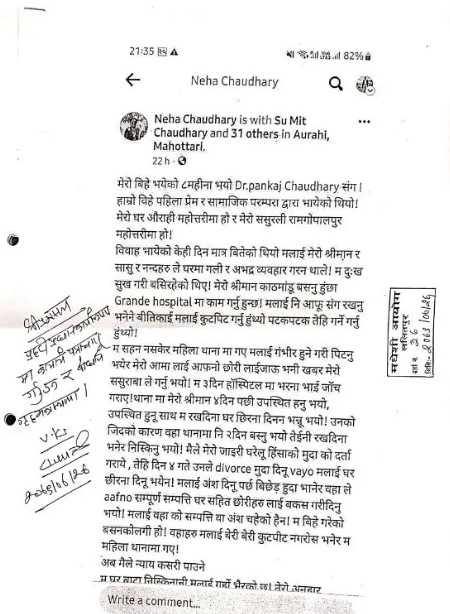 21:35
82%
Neha Chaudhary
Neha Chaudhary is with Su Mit
Chaudhary and 31 others in Aurahi,
Mahottari.
22 h
मेरो बिहे भयेको ८महीना भयो Dr.pankaj Chaudhary संग।
हाम्रो विहे पहिला प्रेम र सामाजिक परम्परा द्वारा भायेको थियो!
मेरो घर औराही महोत्तरीमा हो र मेरो ससुरली रामगोपालपुर
महोत्तरीमा हो!
विवाह भायेको केही दिन मात्र बितेको थियो मलाई मेरो श्रीमान र
सासु र नन्दहरु ले घरमा गली र अभद्र व्यवहार गरन थाले! म दुःख
सुख गरी बसिरहेको थिए! मेरो श्रीमान काठमांडू बसनु हुंछा
Grande hospital मा काम गर्नु हुन्छ! मलाई नि आफू संग रखनु
भनेने बीतिकाई मलाई कुटपिट गर्नु हुंथ्यो पटकपटक तेहि गर्ने गर्नु
हुंथ्यो!
म सहन नसकेर महिला थाना मा गए मलाई गंभीर हुने गरी पिटनु
भयेर मेरो आमा लाई आफनो छोरी लाईजाऊ भनी खबर मेरो
ससुराबा ले गर्नु भयो! म ३दिन हॉस्पिटल मा भरना भाई जाँच
गराए!थाना मा मेरो श्रीमान ४दिन पछी उपस्थित हनु भयो,
उपस्थित हुनू साथ म रखदिना घर छिरना दिनन भन्नू भयो! उनको
जिदको कारण वहा थानामा नि २दिन बस्नु भयो तेईनी रखदिना
भनेर निस्किनु भयो! मैले मेरो जाइरी घरेलू हिंसाको मुदा को दर्ता
गराये , तेहि दिन ४ गते उनले divorce मुदा दिनू vayo मलाई घर
छीरना दिनू भयेन! मलाई अंश दिनू पर्छ बिछेड़ हुदा भानेर यहा ले
aafno सम्पूर्ण सम्पत्ति घर सहित छोरीहरु लाई बकस गरीदिनु
भयो! मलाई वहा को सम्पत्ति या अंश चहेको हैन! म बिहे गरेको
बसनकोलगी हो! वहाहरु मलाई बेरी बेरी कुटपीट नगरोस भनेर म
महिला थानामा गए!
अब मैले न्याय कसरी पाउने
Write a comment...
मधेसी आयोग
ललितपुर